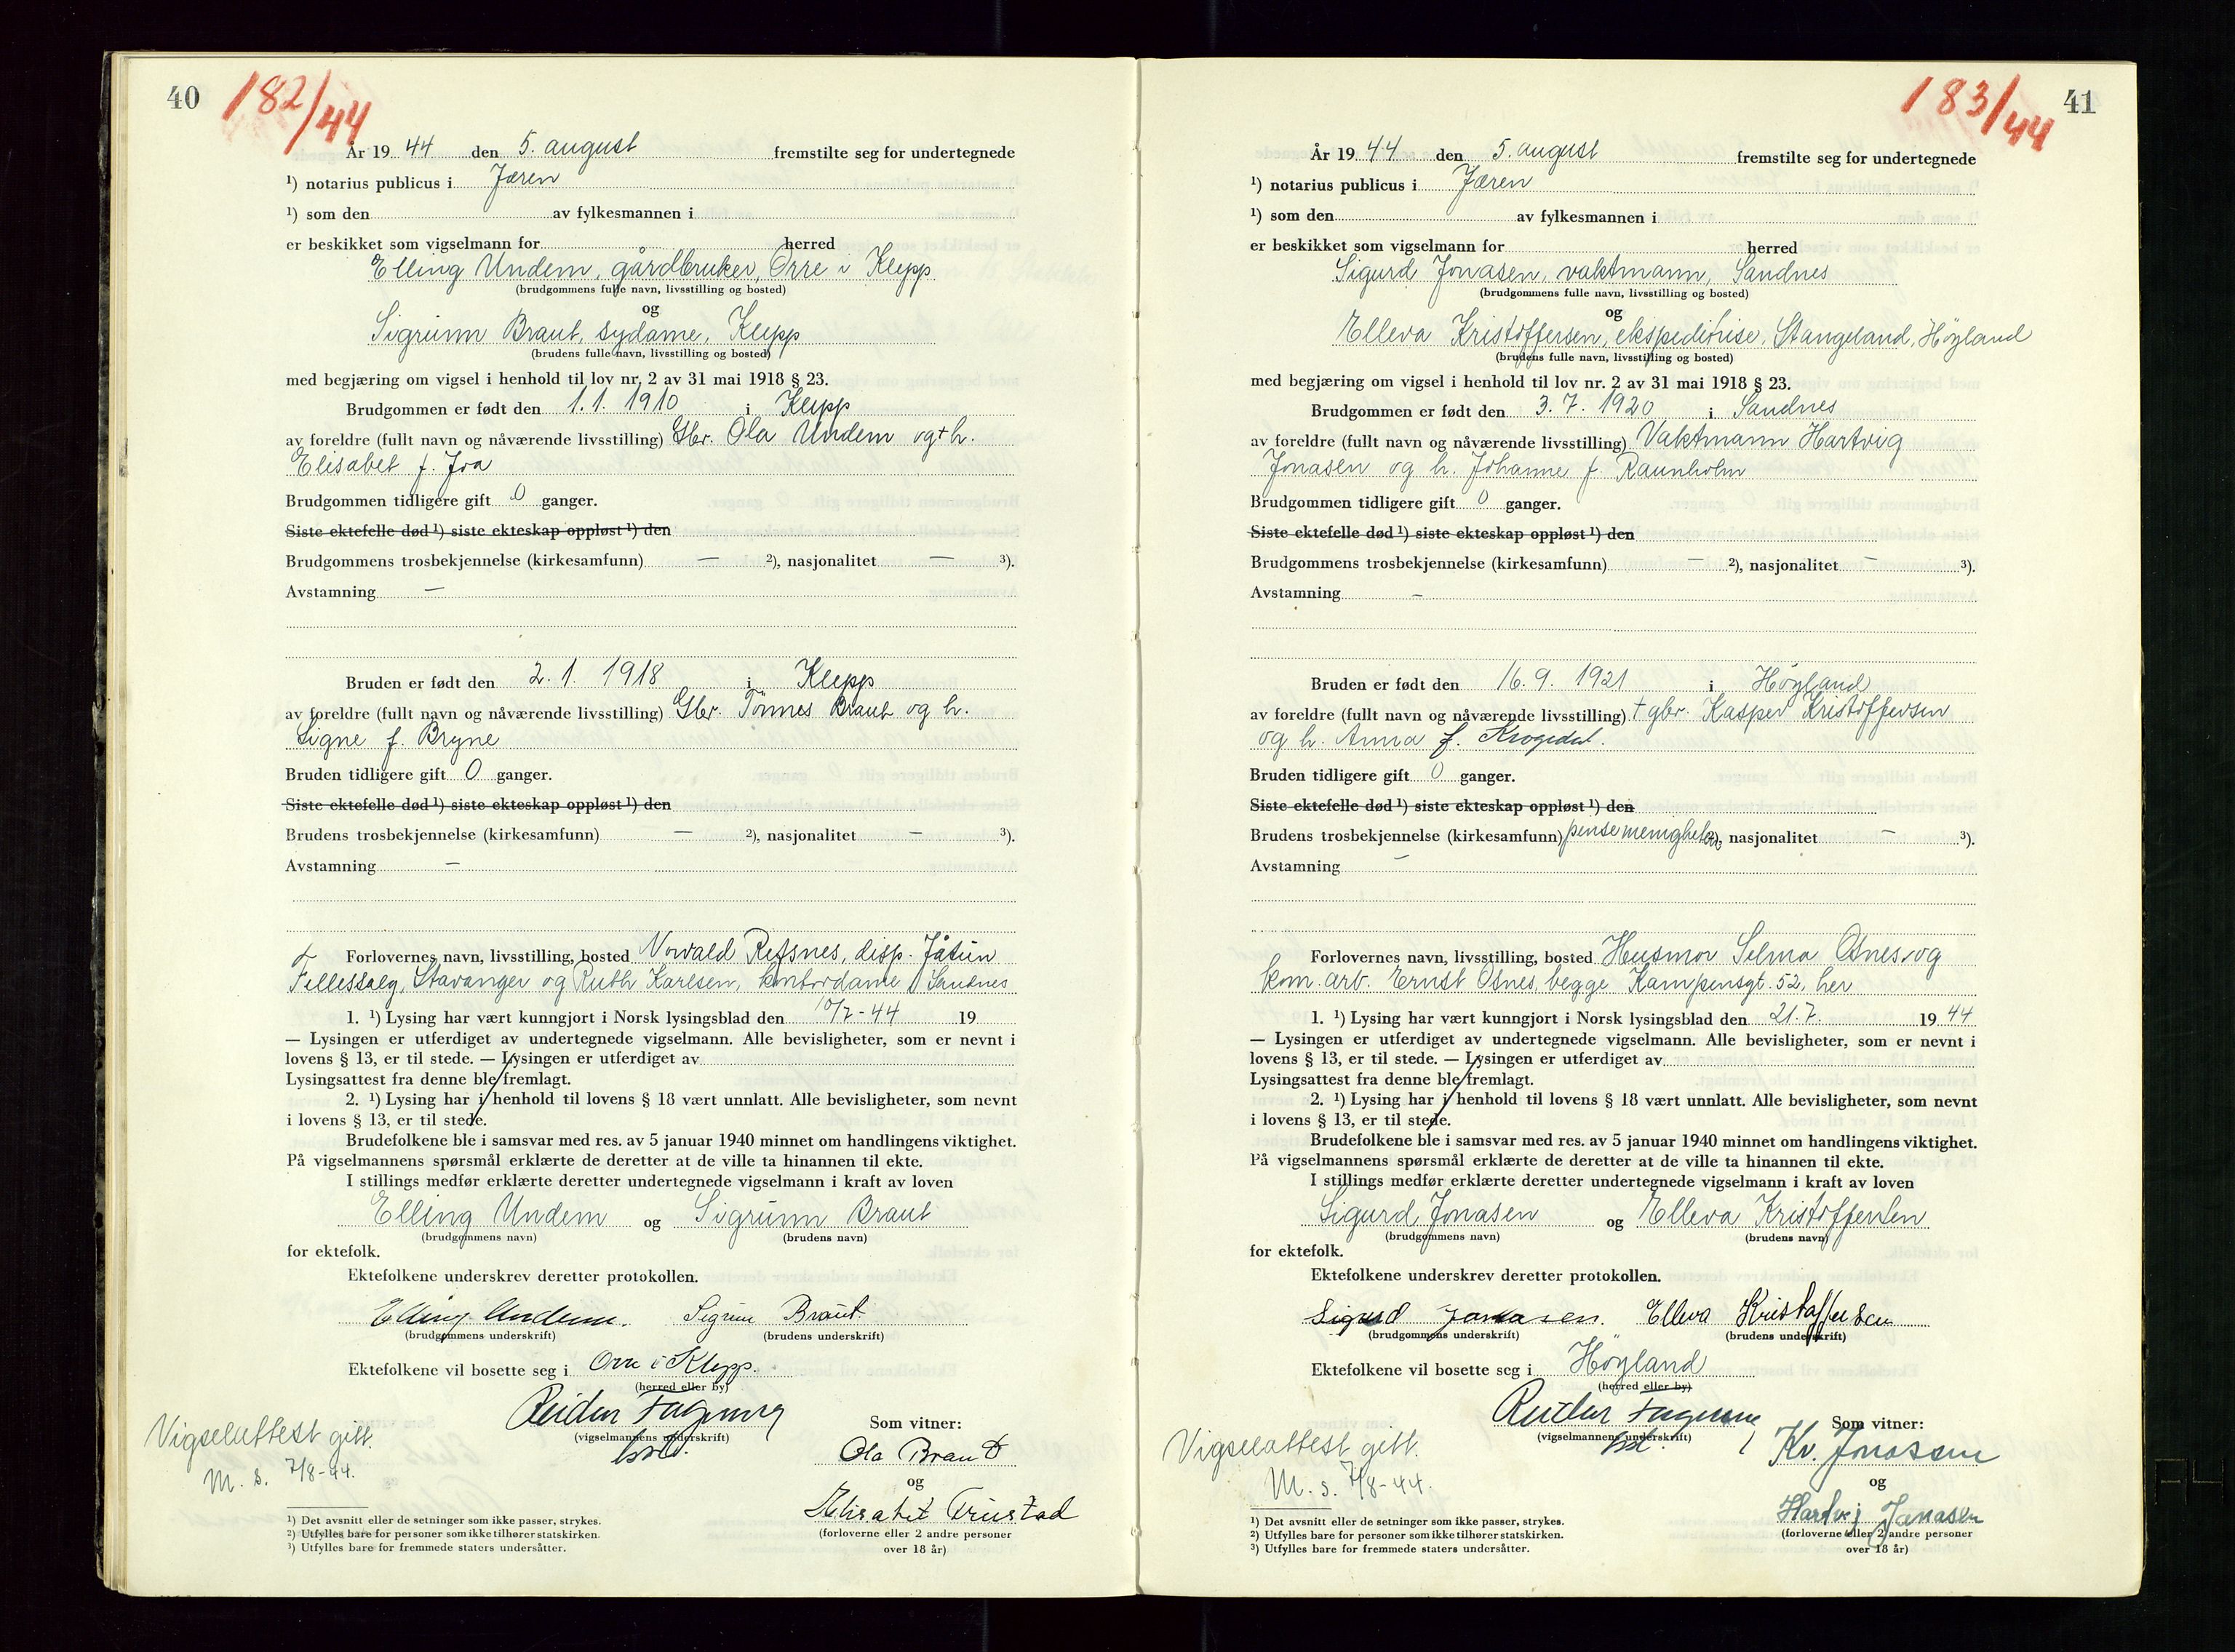 40
182/44
År 19 44 den 5. august fremstilte seg for undertegnede
¹) notarius publicus i Jæren
¹) som den av fylkesmannen i
er beskikket som vigselmann for herred
Elling Undem, gårdbruker, Orre i Klepp
(brudgommens fulle navn, livsstilling og bosted)
og
Sigrunn Braut, sydame, Klepp
(brudens fulle navn, livsstilling og bosted)
med begjæring om vigsel i henhold til lov nr. 2 av 31 mai 1918 § 23.
Brudgommen er født den 1.1. 1910 i Klepp
av foreldre (fullt navn og nåværende livsstilling) Gbr. Ola Undem og + h.
Elisabet f. Joa
Brudgommen tidligere gift 0 ganger.
Siste ektefelle død ¹) siste ekteskap oppløst ¹) den
Brudgommens trosbekjennelse (kirkesamfunn) — ²), nasjonalitet — ³).
Avstamning —
Bruden er født den 2. 1. 1918 i Klepp
av foreldre (fullt navn og nåværende livsstilling) Gbr. Tönnes Braut og h.
Signe f. Bryne
Bruden tidligere gift 0 ganger.
Siste ektefelle død ¹) siste ekteskap oppløst ¹) den
Brudens trosbekjennelse (kirkesamfunn) — ²), nasjonalitet — ³).
Avstamning —
Forlovernes navn, livsstilling, bosted Norvald Refsnes, disp. Jåtun
Fellessalg, Stavanger og Ruth Karlsen, kontordame, Sandnes
1. ¹) Lysing har vært kunngjort i Norsk lysingsblad den 10/7-44 19
— Lysingen er utferdiget av undertegnede vigselmann. Alle bevisligheter, som er nevnt i
lovens § 13, er til stede. — Lysingen er utferdiget av
Lysingsattest fra denne ble fremlagt.
2. ¹) Lysing har i henhold til lovens § 18 vært unnlatt. Alle bevisligheter, som nevnt
i lovens § 13, er til stede.
Brudefolkene ble i samsvar med res. av 5 januar 1940 minnet om handlingens viktighet.
På vigselmannens spørsmål erklærte de deretter at de ville ta hinannen til ekte.
I stillings medfør erklærte deretter undertegnede vigselmann i kraft av loven
Elling Undem og Sigrunn Braut
(brudgommens navn) (brudens navn)
for ektefolk.
Ektefolkene underskrev deretter protokollen.
Elling Undem. Sigrun Braut.
(brudgommens underskrift) (brudens underskrift)
Ektefolkene vil bosette seg i Orre i Klepp.
(herred eller by)
Vigselattest gitt.
M. S. 7/8-44.
(vigselmannens underskrift)
Som vitner:
Ola Braut
og
Elisabet Friestad
(forloverne eller 2 andre personer
over 18 år)
¹) Det avsnitt eller de setninger som ikke passer, strykes.
²) Utfylles bare for personer som ikke tilhører statskirken.
³) Utfylles bare for fremmede staters undersåtter.
41
183/44
År 19 44 den 5. august fremstilte seg for undertegnede
¹) notarius publicus i Jæren
¹) som den av fylkesmannen i
er beskikket som vigselmann for herred
Sigurd Jonasen, vaktmann, Sandnes
(brudgommens fulle navn, livsstilling og bosted)
og
Elleva Kristoffersen, ekspeditrise, Stangeland, Höyland
(brudens fulle navn, livsstilling og bosted)
med begjæring om vigsel i henhold til lov nr. 2 av 31 mai 1918 § 23.
Brudgommen er født den 3. 7. 1920 i Sandnes
av foreldre (fullt navn og nåværende livsstilling) Vaktmann Hartvig
Jonasen og h. Johanne f. Raunholm
Brudgommen tidligere gift 0 ganger.
Siste ektefelle død ¹) siste ekteskap oppløst ¹) den
Brudgommens trosbekjennelse (kirkesamfunn) — ²), nasjonalitet — ³).
Avstamning —
Bruden er født den 16. 9. 1921 i Höyland
av foreldre (fullt navn og nåværende livsstilling) + gbr. Kasper Kristoffersen
og h. Anna f. Krogedal.
Bruden tidligere gift 0 ganger.
Siste ektefelle død ¹) siste ekteskap oppløst ¹) den
Brudens trosbekjennelse (kirkesamfunn) pinsemenigheten ²), nasjonalitet — ³).
Avstamning —
Forlovernes navn, livsstilling, bosted Husmor Selma Osnes og
kom. arb. Ernst Osnes, begge Kampensgt. 52, her
1. ¹) Lysing har vært kunngjort i Norsk lysingsblad den 21. 7. 19 44
— Lysingen er utferdiget av undertegnede vigselmann. Alle bevisligheter, som er nevnt i
lovens § 13, er til stede. — Lysingen er utferdiget av
Lysingsattest fra denne ble fremlagt.
2. ¹) Lysing har i henhold til lovens § 18 vært unnlatt. Alle bevisligheter, som nevnt
i lovens § 13, er til stede.
Brudefolkene ble i samsvar med res. av 5 januar 1940 minnet om handlingens viktighet.
På vigselmannens spørsmål erklærte de deretter at de ville ta hinannen til ekte.
I stillings medfør erklærte deretter undertegnede vigselmann i kraft av loven
Sigurd Jonasen og Elleva Kristoffersen
(brudgommens navn) (brudens navn)
for ektefolk.
Ektefolkene underskrev deretter protokollen.
Sigurd Jonasen. Elleva Kristoffersen
(brudgommens underskrift) (brudens underskrift)
Ektefolkene vil bosette seg i Höyland
(herred eller by)
Vigselattest gitt.
M. S. 7/8-44.
(vigselmannens underskrift)
Som vitner:
Kr. Jonassen
og
Hartvig Jonasen
(forloverne eller 2 andre personer
over 18 år)
¹) Det avsnitt eller de setninger som ikke passer, strykes.
²) Utfylles bare for personer som ikke tilhører statskirken.
³) Utfylles bare for fremmede staters undersåtter.